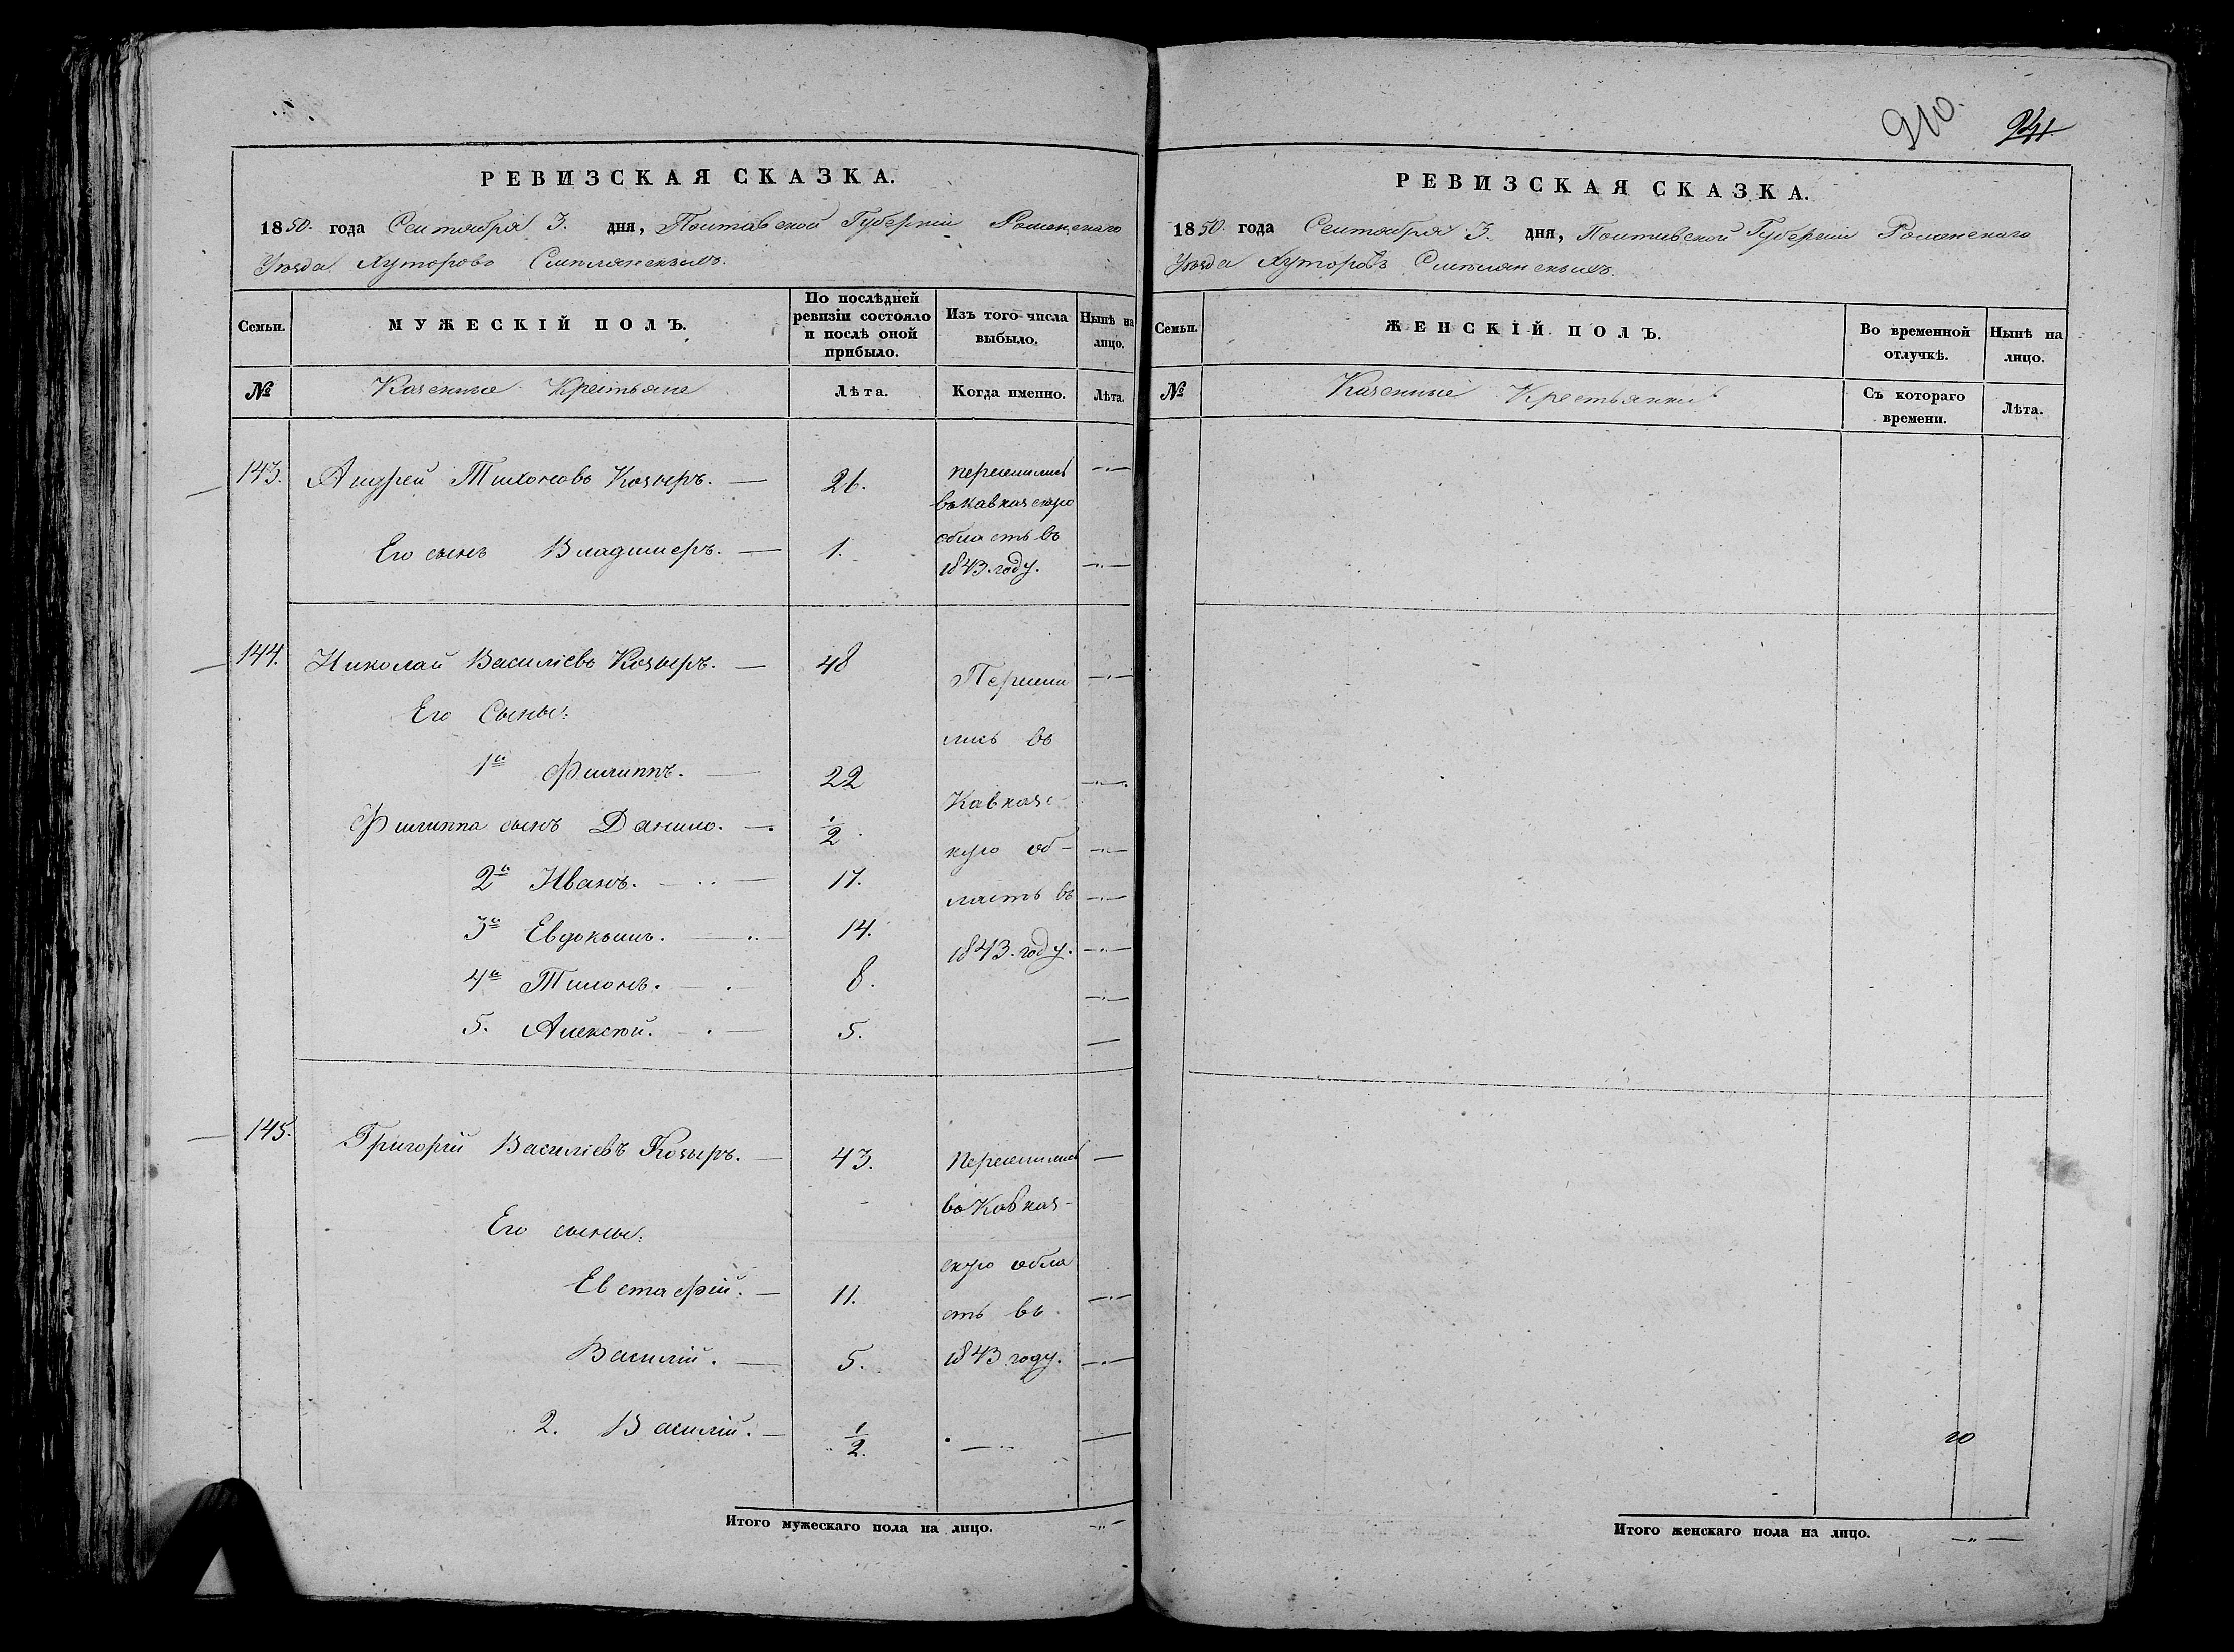 РЕВИЗСКАЯ СКАЗКА.
1850. года Сентября 3. дня, Полтавской Губерніи Роменскаго
Уѣзда Хуторовъ Смѣлянскихъ.
Семьи.
МУЖЕСКІЙ ПОЛЪ.
По послѣдней ревизіи состояло и послѣ оной прибыло.
Изъ того числа выбыло.
Нынѣ на лицо.
№
Казенные Крестьяне
Лѣта.
Когда именно.
Лѣта.
143. Андрей Тихоновъ Козыръ. — 26.
переселились
въ Кавказскую
Его сынъ Владимеръ. — 1.
область въ
1843. году.
144. Николай Василіевъ Козыръ. — 48
Пересели
Его Сыны:
лись въ
1й Филиппъ. — 22
Кавказс
Филиппа сынъ Данило. — 1/2
кую об-
2й Иванъ. — 17.
ласть въ
3й Евдокимъ. — 14.
1843. году.
4й Тихонъ. — 8.
5. Алексѣй. — 5.
145. Григорій Василіевъ Козыръ. — 43.
Переселились
въ Кавказ-
Его сыны:
скую обла
Евстафій. — 11.
сть въ
Василій. — 5.
1843 году.
2. Василій. — 1/2.
Итого мужескаго пола на лицо. —"—
210. 241.
РЕВИЗСКАЯ СКАЗКА.
1850. года Сентября 3. дня, Полтавской Губерніи Роменскаго
Уѣзда Хуторовъ Смѣлянскихъ.
Семьи.
ЖЕНСКІЙ ПОЛЪ.
Во временной отлучкѣ.
Нынѣ на лицо.
№
Казенные Крестьянки
Съ котораго времени.
Лѣта.
Итого женскаго пола на лицо. —"—